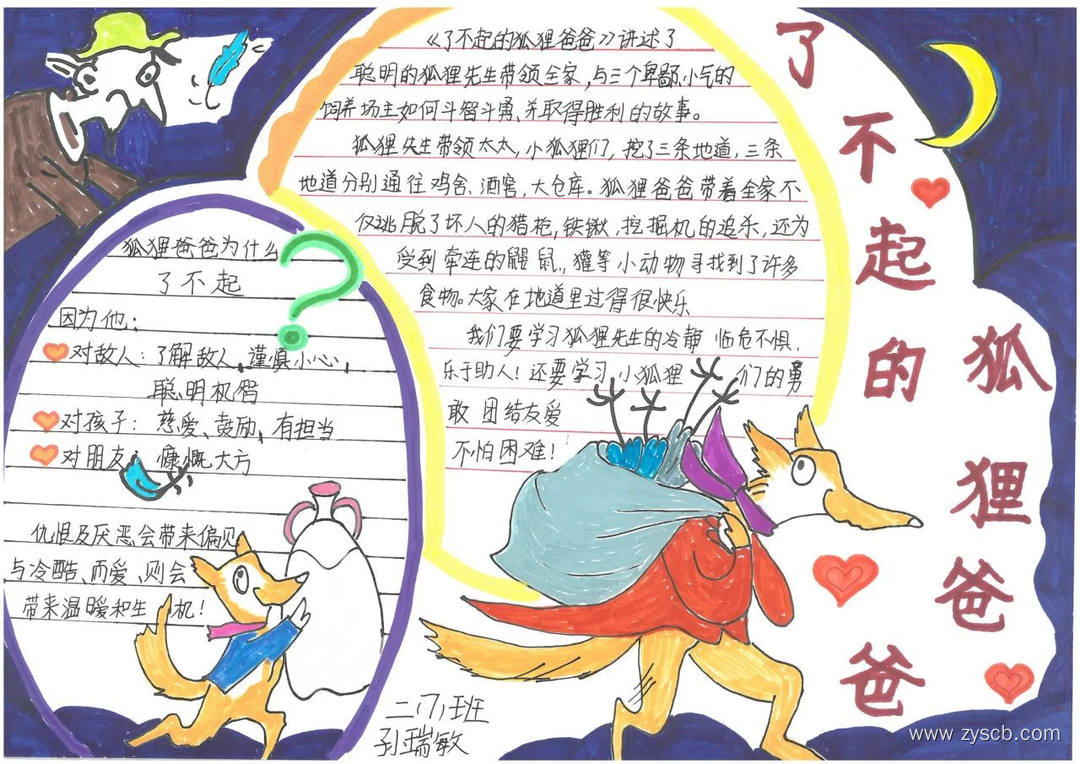 了不起的狐狸爸爸
《了不起的狐狸爸爸》讲述了
聪明的狐狸先生带领全家,与三个卑鄙小气的
饲养场主如何斗智斗勇、并取得胜利的故事。
狐狸先生带领太太,小狐狸们,挖了三条地道,三条
地道分别通往鸡舍、酒窖,大仓库。狐狸爸爸带着全家不
仅逃脱了坏人的猎枪,铁锹,挖掘机的追杀,还为
受到牵连的鼹鼠,,獾等小动物寻找到了许多
食物。大家在地道里过得很快乐
我们要学习狐狸先生的冷静 临危不惧,
乐于助人!还要学习小狐狸们的勇
敢 团结友爱
不怕困难!
狐狸爸爸为什么?
了不起
因为他:
对敌人:了解敌人、谨慎小心,
聪明机智
对孩子:慈爱、鼓励,有担当
对朋友:慷慨大方
仇恨及厌恶会带来偏见
与冷酷、而爱、则会
带来温暖和生机!
二(7)班
孙瑞敏
www.zyscb.com